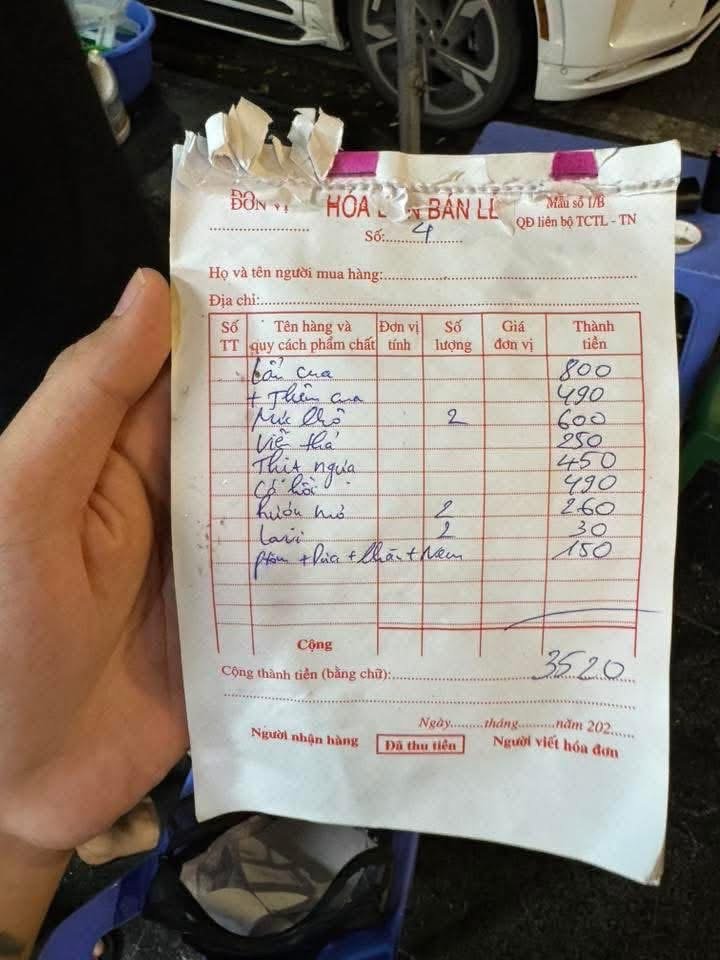 ĐƠN VỊ HÓA ĐƠN BÁN LẺ Mẫu số 1/B
Số: 4 QĐ liên bộ TCTL - TN
Họ và tên người mua hàng:
Địa chỉ:
Số TT Tên hàng và quy cách phẩm chất Đơn vị tính Số lượng Giá đơn vị Thành tiền
Lẩu cua 800
+ Thêm cua 490
Mực khô 2 600
Viễn thả 250
Thịt ngựa 450
Cá hồi 490
2 260
Lavi 2 30
+ Dứa + Khăn + 150
Cộng
Cộng thành tiền (bằng chữ): 3520
Ngày tháng năm 202
Người nhận hàng Đã thu tiền Người viết hóa đơn